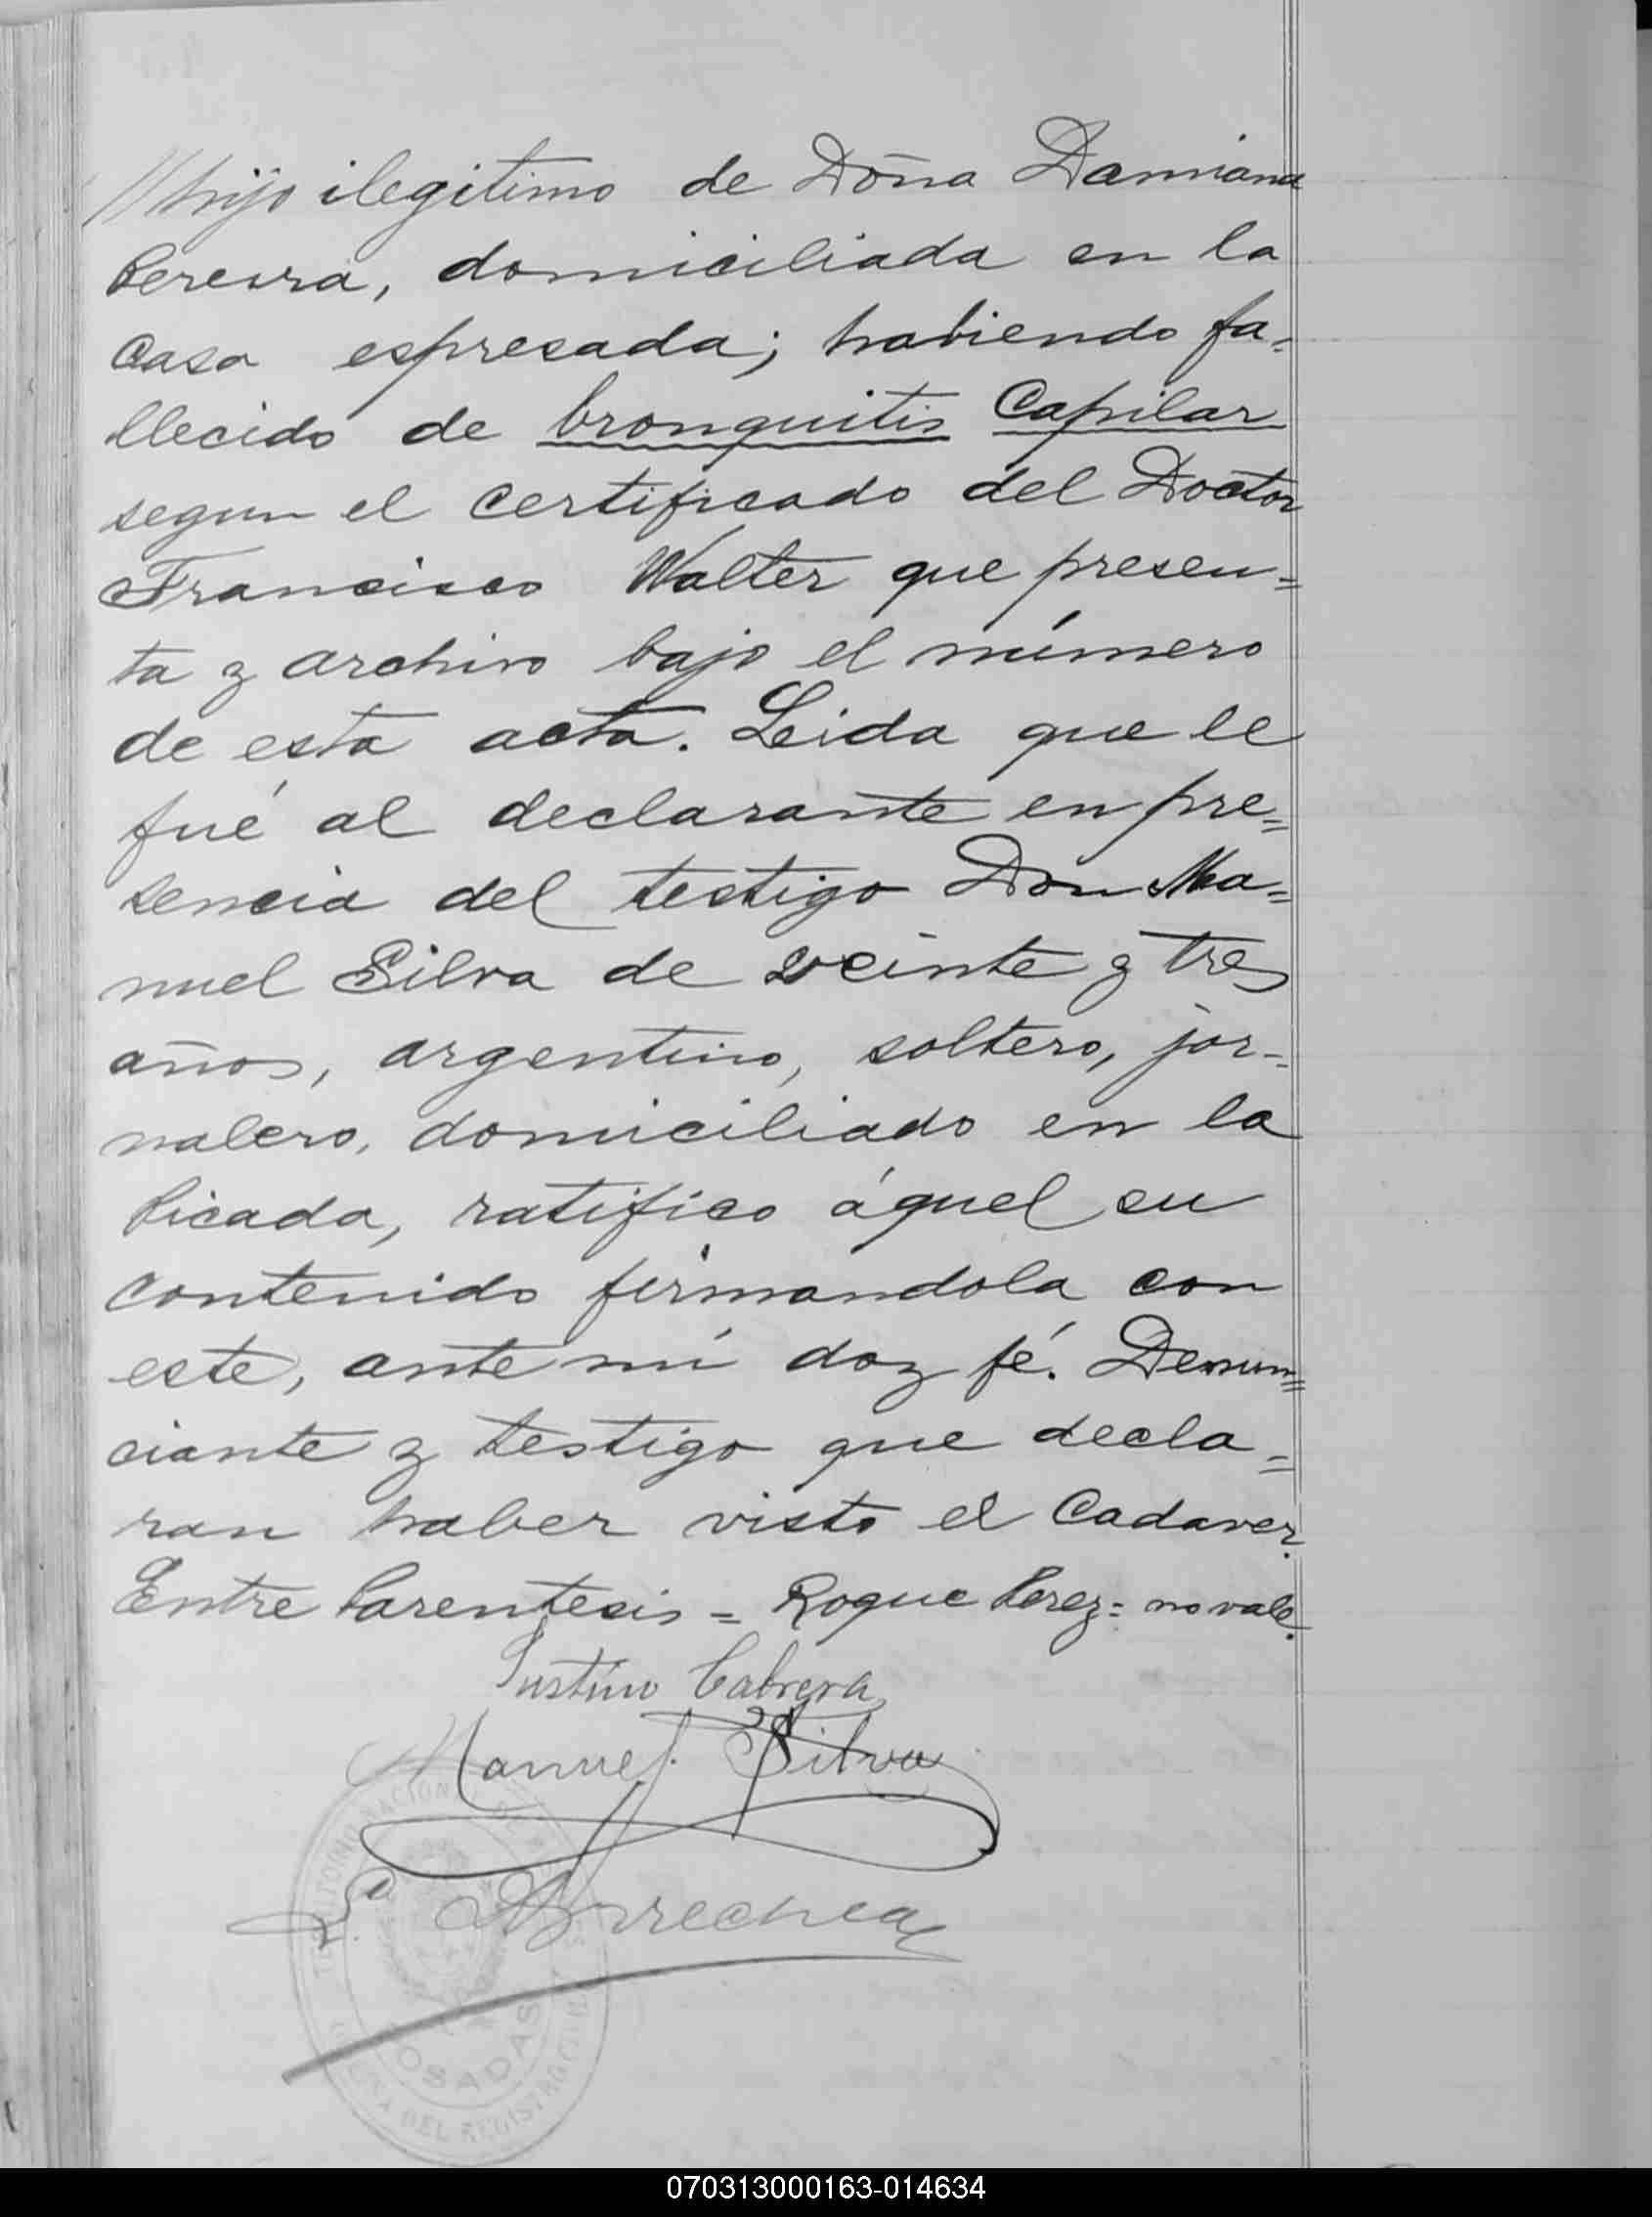 // hijo ilegitimo de Doña Damiana
Pereira, domiciliada en la
casa espresada; habiendo fa-
llecido de bronquitis Capilar
segun el certificado del Doctor
Francisco Walter que presen=
ta y archivo bajo el número
de esta acta. Leida que le
fué al declarante en pre=
sencia del testigo Don Ma=
nuel Silva de veinte y tres
años, argentino, soltero, jor-
nalero, domiciliado en la
Picada, ratifico áquel su
contenido firmandola con
este, ante mí doy fé. Denun=
ciante y testigo que decla=
ran haber visto el Cadaver.
Entre Parentesis = Roque Perez = no vale.
Justino Cabrera
Manuel Silva
Arrechea
TERRITORIO NACIONAL DE MISIONES
POSADAS
OFICINA DEL REGISTRO CIVIL
070313000163-014634